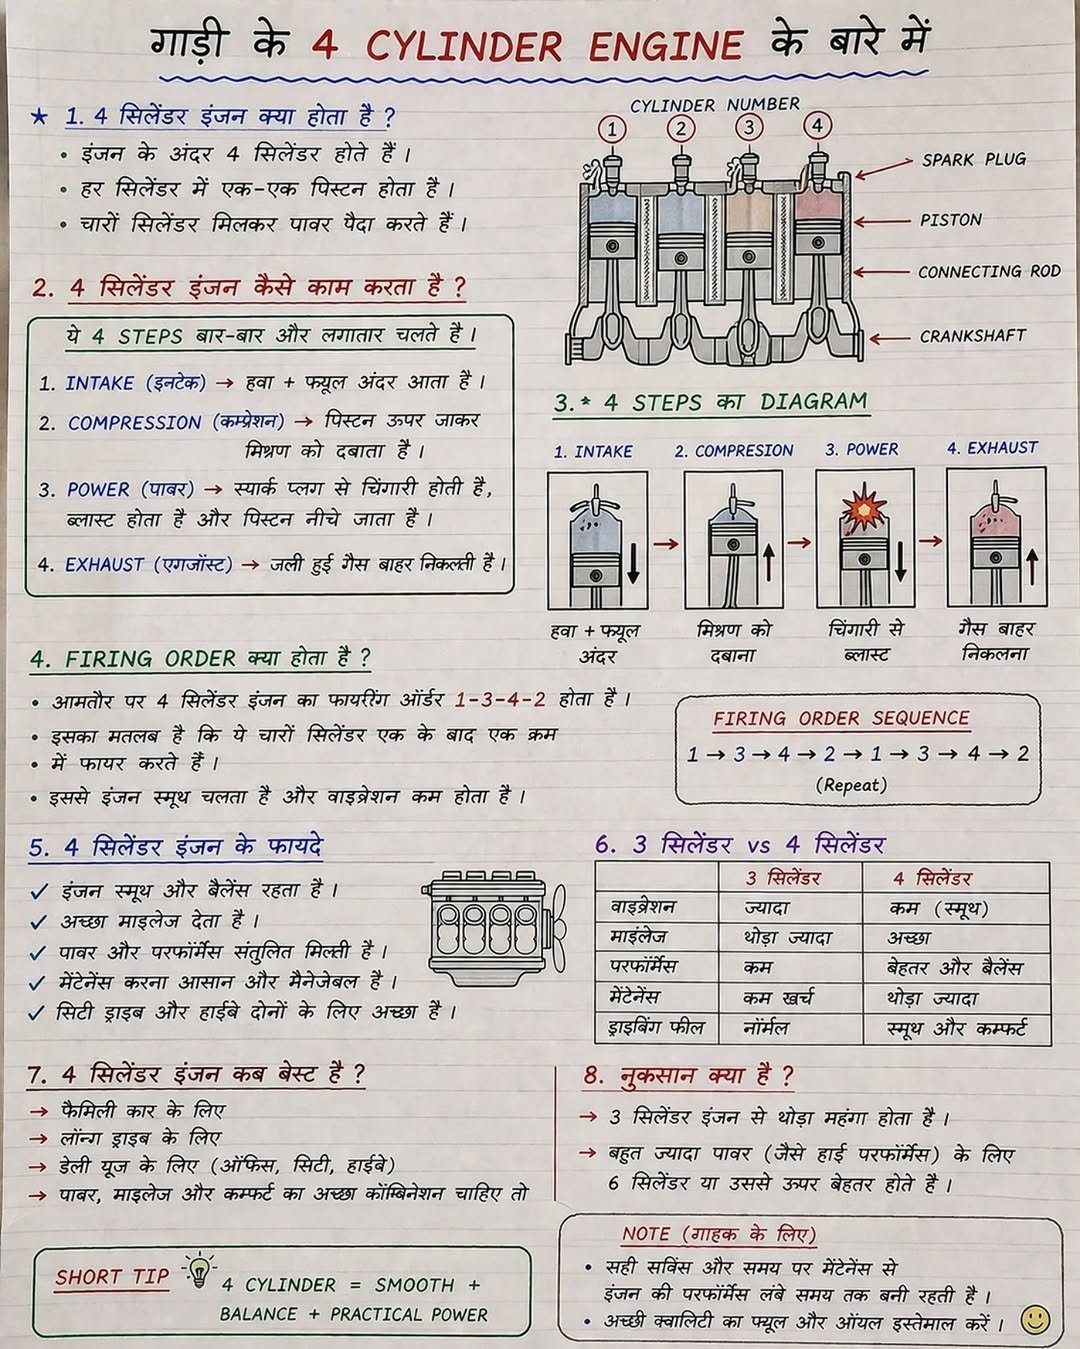 गाड़ी के 4 CYLINDER ENGINE के बारे में
★ 1. 4 सिलेंडर इंजन क्या होता है ?
• इंजन के अंदर 4 सिलेंडर होते हैं ।
• हर सिलेंडर में एक-एक पिस्टन होता है ।
• चारों सिलेंडर मिलकर पावर पैदा करते हैं ।
CYLINDER NUMBER
1 2 3 4
SPARK PLUG
PISTON
CONNECTING ROD
CRANKSHAFT
2. 4 सिलेंडर इंजन कैसे काम करता है ?
ये 4 STEPS बार-बार और लगातार चलते है ।
1. INTAKE (इनटेक) → हवा + फयूल अंदर आता है ।
2. COMPRESSION (कम्प्रेशन) → पिस्टन ऊपर जाकर
मिश्रण को दबाता है ।
3. POWER (पाबर) → स्पार्क प्लग से चिंगारी होती है,
ब्लास्ट होता है और पिस्टन नीचे जाता है ।
4. EXHAUST (एगजॉस्ट) → जली हुई गैस बाहर निकलती है ।
3.* 4 STEPS का DIAGRAM
1. INTAKE 2. COMPRESION 3. POWER 4. EXHAUST
हवा + फयूल
अंदर
मिश्रण को
दबाना
चिंगारी से
ब्लास्ट
गैस बाहर
निकलना
4. FIRING ORDER क्या होता है ?
• आमतौर पर 4 सिलेंडर इंजन का फायरींग ऑर्डर 1-3-4-2 होता है ।
• इसका मतलब है कि ये चारों सिलेंडर एक के बाद एक क्रम
• में फायर करते हैं ।
• इससे इंजन स्मूथ चलता है और वाइब्रेशन कम होता है ।
FIRING ORDER SEQUENCE
1 → 3 → 4 → 2 → 1 → 3 → 4 → 2
(Repeat)
5. 4 सिलेंडर इंजन के फायदे
✓ इंजन स्मूथ और बैलेंस रहता है ।
✓ अच्छा माइलेज देता है ।
✓ पावर और परफॉर्मेंस संतुलित मिलती है ।
✓ मेंटेनेंस करना आसान और मैनेजेबल है ।
✓ सिटी ड्राइब और हाईबे दोनों के लिए अच्छा है ।
6. 3 सिलेंडर vs 4 सिलेंडर
3 सिलेंडर 4 सिलेंडर
वाइब्रेशन ज्यादा कम (स्मूथ)
माइंलेज थोड़ा ज्यादा अच्छा
परफॉर्मेंस कम बेहतर और बैलेंस
मेंटेनेंस कम खर्च थोड़ा ज्यादा
ड्राइबिंग फील नॉर्मल स्मूथ और कम्फर्ट
7. 4 सिलेंडर इंजन कब बेस्ट है ?
→ फैमिली कार के लिए
→ लॉन्ग ड्राइब के लिए
→ डेली यूज के लिए (ऑफिस, सिटी, हाईबे)
→ पाबर, माइलेज और कम्फर्ट का अच्छा कॉम्बिनेशन चाहिए तो
8. नुकसान क्या है ?
→ 3 सिलेंडर इंजन से थोड़ा महंगा होता है ।
→ बहुत ज्यादा पावर (जैसे हाई परफॉर्मेंस) के लिए
6 सिलेंडर या उससे ऊपर बेहतर होते है ।
SHORT TIP
4 CYLINDER = SMOOTH +
BALANCE + PRACTICAL POWER
NOTE (गाहक के लिए)
• सही सर्विस और समय पर मेंटेनेंस से
इंजन की परफॉर्मेंस लंबे समय तक बनी रहती है ।
• अच्छी क्वालिटी का फ्यूल और ऑयल इस्तेमाल करें ।